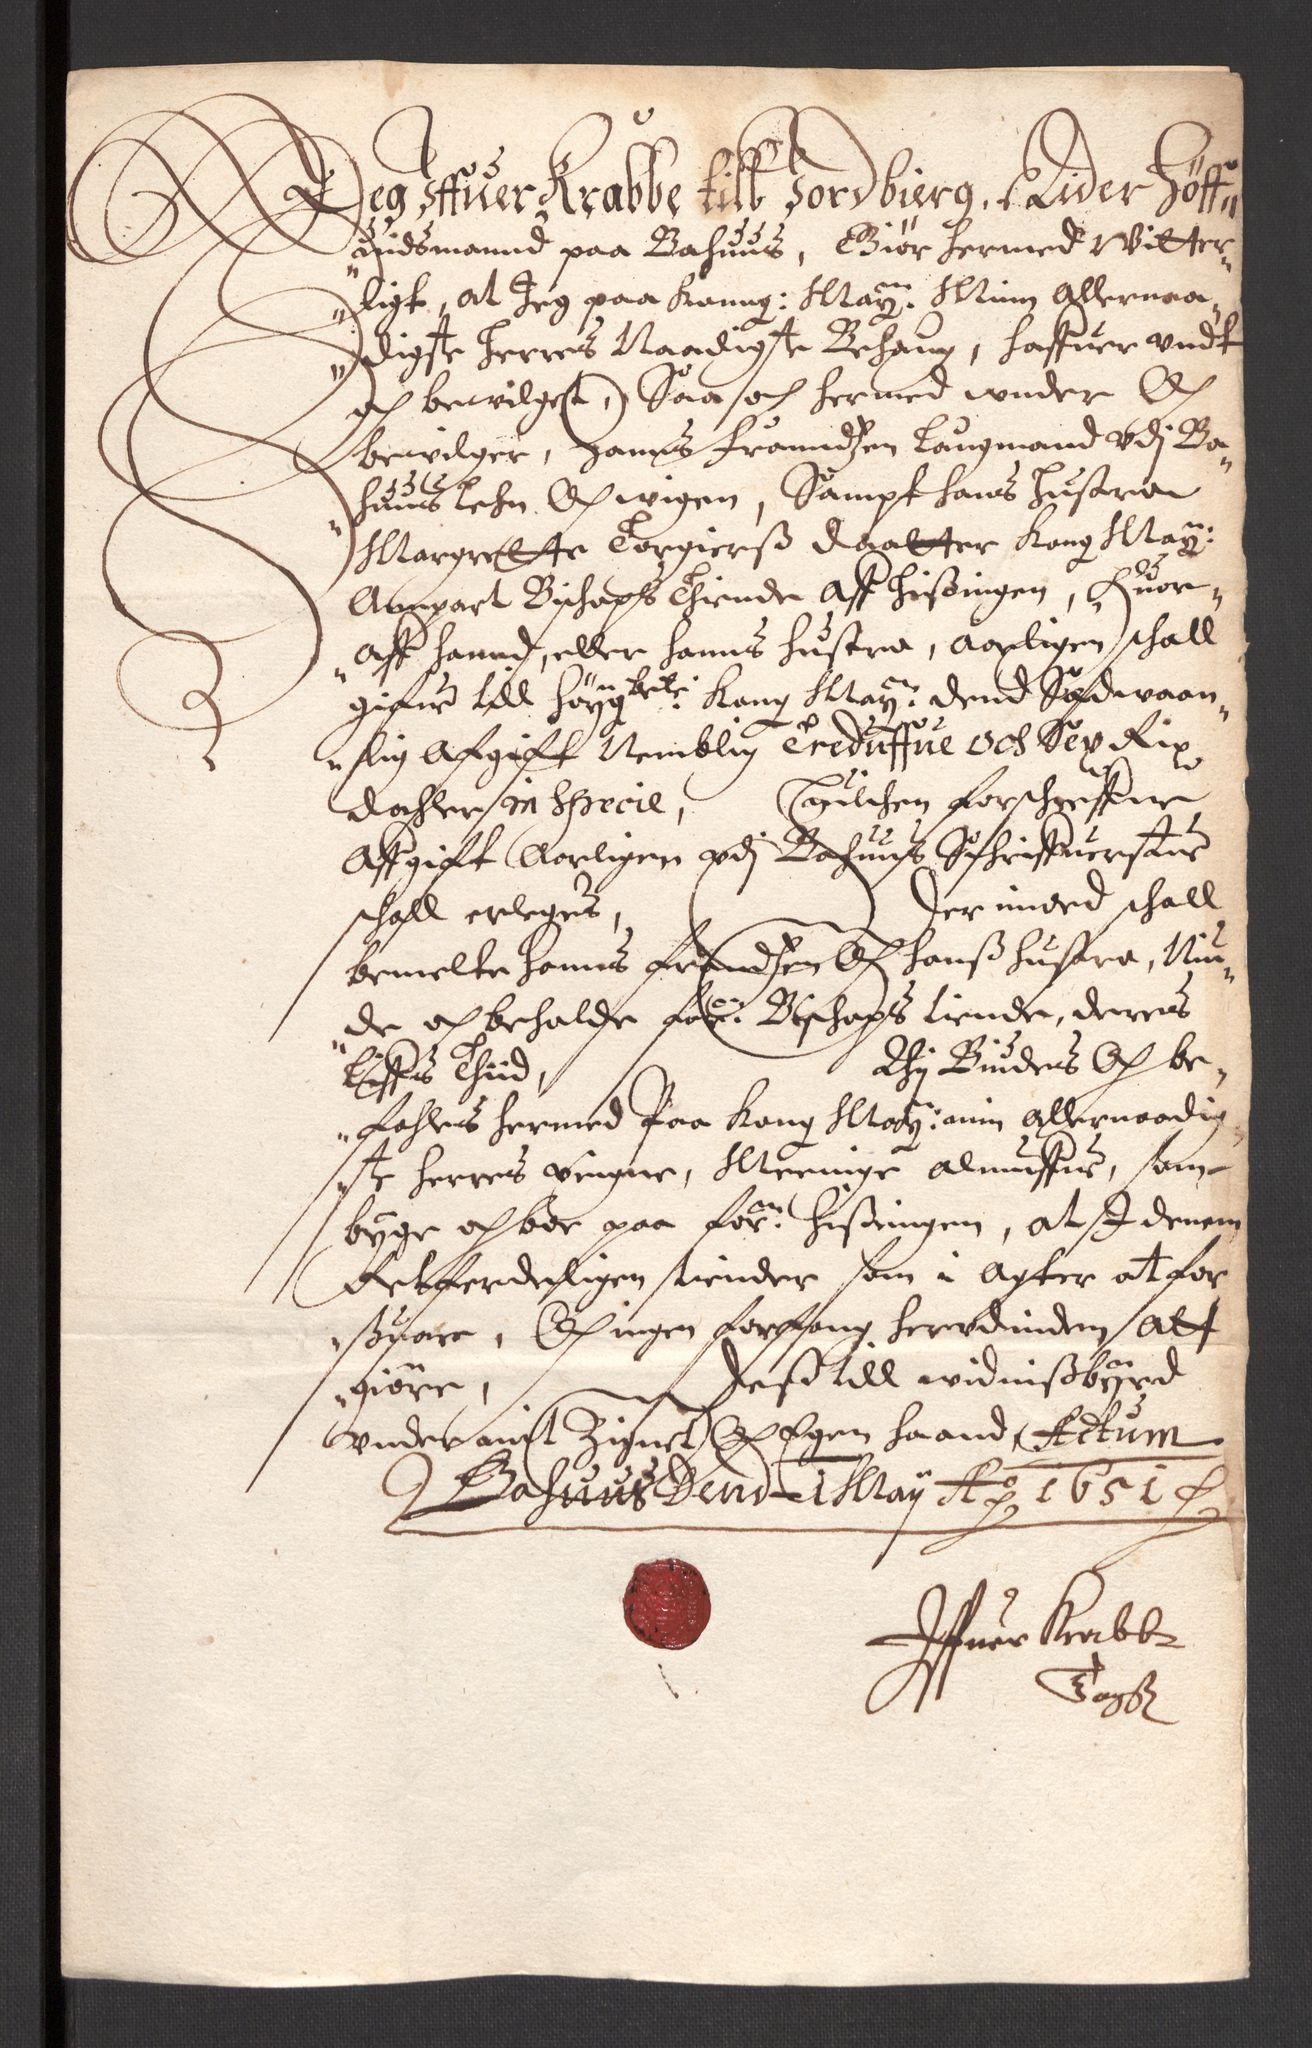 Jeg Iffuer Krabbe till Jordbierg, Rider Höff„
„uidsmannd paa Bahuus, Giör hermed Witter„
„ligt, at Jeg paa Kanng: Maÿ: Minn Allernaa„
„digste Herres Naadigste Behaug, haffuer undt
och bewilget, Saa och hermed under Och
bewilger, Hanns Franndzen Laugmand udj Ba„
„huus Lehn Och wigen, Sampt hans Hustrue
Margrette Torgierß Daatter Kong Maÿ:
Anpart Bischops Thiende Aff Hisingen, Huor„
„aff hannd, eller hanns hustru, aarligen schall
gifue till höÿgbete: Kong Maÿ: dend Sædwaan„
„lig Afgift Nemblig Treduffue och Sex Rix
daahler in Specie, Huilchen forschreffne
Affgift Aarligen udj Bahuus Schriffuerstue
schall erleges, Der imod schall
bemelte Hanns Frandzen Och Hanß hustru, Niu„
„de och beholde for:ne Bischops tiende, deres
Liffs Thiid, Thj Biudes Och be„
„fahles hermed Paa Kong Maÿ: min Allernaadig„
„ste Herres vegne, Meenige Almuffue, som
byge och boe paa for:ne Hisingen, at I denem
Retferdeligen tiender som i agter at for
„suare, Och ingen forfang herudinden Att
„giöre, Dess till widnißbyrd
under mit Zignet Och Egen haand, Actum
Bahuus Dend 1 Maÿ Ao 1651
Iffuer Krabbe
Egh